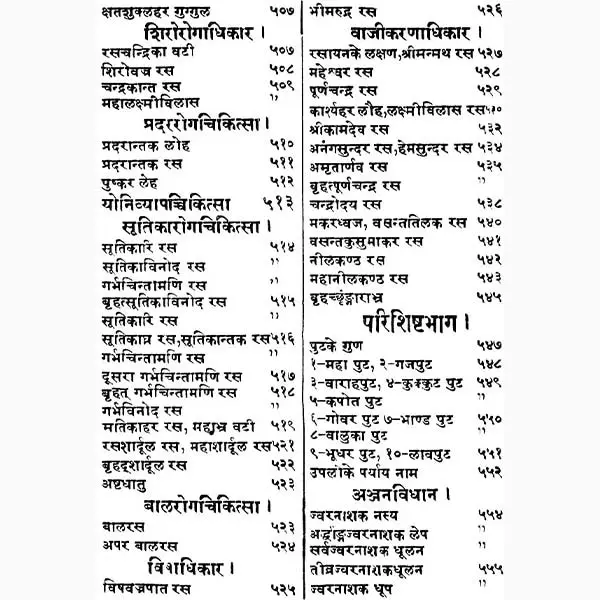 क्षतशुक्लहर गुग्गुल ५०७
शिरोरोगाधिकार।
रसचन्द्रिका वटी ५०७
शिरोवज्र रस ५०८
चन्द्रकान्त रस ५०९
महालक्ष्मीविलास "
प्रदररोगचिकित्सा।
प्रदरान्तक लोह ५१०
प्रदरान्तक रस ५११
पुष्कर लेह ५१२
योनिव्यापच्चिकित्सा ५१३
सूतिकारोगचिकित्सा।
सूतिकारि रस ५१४
सूतिकाविनोद रस "
गर्भचिन्तामणि रस "
बृहत्सूतिकाविनोद रस ५१५
सूतिकारि रस "
सूतिकाघ्र रस,सूतिकान्तक रस ५१६
गर्भचिन्तामणि रस "
दूसरा गर्भचिन्तामणि रस ५१७
बृहत् गर्भचिन्तामणि रस ५१८
गर्भविनोद रस "
मतिकाहर रस, महाभ्र वटी ५१९
रसशार्दूल रस, महाशार्दूल रस ५२१
बृहद्शार्दूल रस ५२२
अष्टधातु ५२३
बालरोगचिकित्सा।
बालरस ५२३
अपर बालरस ५२४
विशाधिकार।
विषवज्रपात रस ५२५
भीमरुद्र रस ५२६
वाजीकरणाधिकार।
रसायनके लक्षण,श्रीमन्मथ रस ५२७
महेश्वर रस ५२८
पूर्णचन्द्र रस ५२९
कार्श्यहर लौह,लक्ष्मीविलास रस ५३०
श्रीकामदेव रस ५३२
अनंगसुन्दर रस,हेमसुन्दर रस ५३४
अमृतार्णव रस ५३५
बृहत्पूर्णचन्द्र रस "
चन्द्रोदय रस ५३८
मकरध्वज, वसन्ततिलक रस ५४०
वसन्तकुसुमाकर रस ५४१
नीलकण्ठ रस ५४२
महानीलकण्ठ रस ५४३
बृहच्छृंङ्गाराभ्र ५४५
परिशिष्टभाग।
पुटके गुण ५४७
१-महा पुट, २-गजपुट ५४८
३-वाराहपुट, ४-कुक्कुट पुट ५४९
५-कपोत पुट "
६-गोवर पुट ७-भाण्ड पुट ५५०
८-वालुका पुट "
९-भूधर पुट, १०-लावपुट ५५१
उपलोंके पर्याय नाम ५५२
अञ्जनविधान।
ज्वरनाशक नस्य ५५४
अर्द्धाङ्गज्वरनाशक लेप "
सर्वज्वरनाशक धूलन "
तीव्रज्वरनाशकधूलन ५५५
ज्वरनाशक धूप "